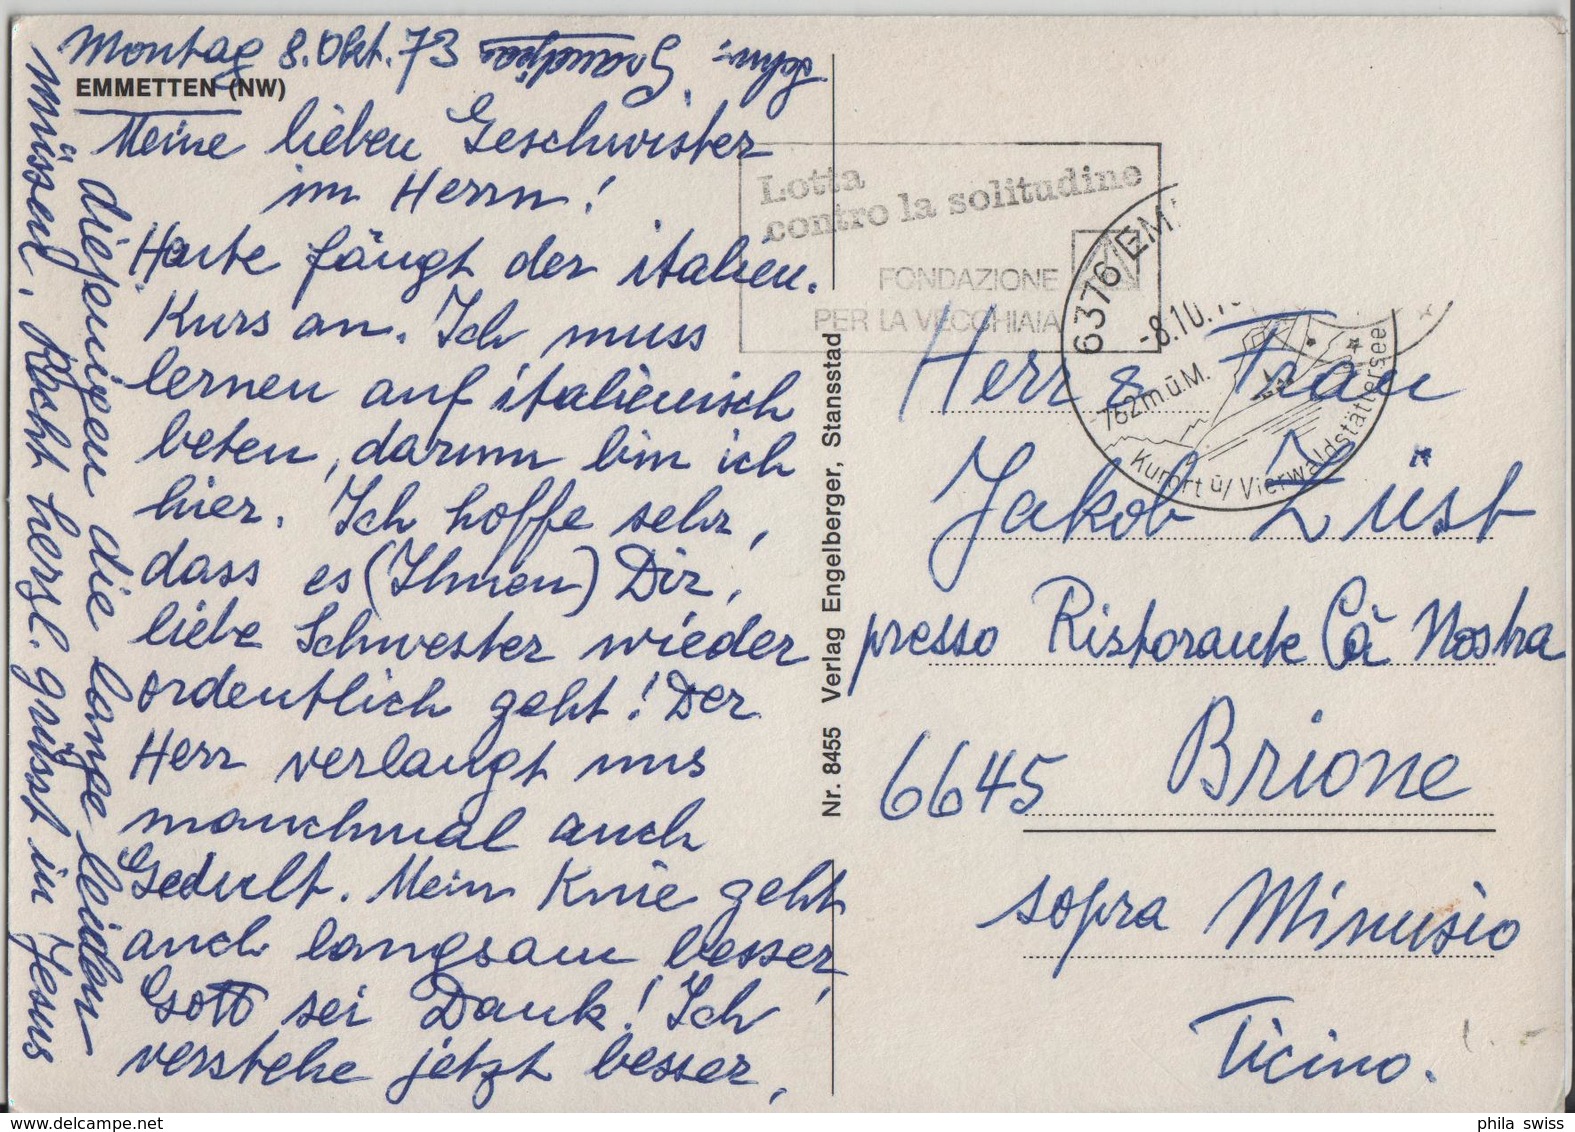 Montag 8. Okt. 73
EMMETTEN (NW)
Meine lieben Geschwister
im Herrn!
Heute fängt der italien.
Kurs an. Ich muss
lernen auf italienisch
beten, darum bin ich
hier. Ich hoffe sehr,
dass es (Ihnen) Dir,
liebe Schwester wieder
ordentlich geht! Der
Herr verlangt uns
manchmal auch
Gedult. Mein Knie geht
auch langsam besser,
Gott sei Dank! Ich
verstehe jetzt besser,
diejenigen die lange leiden
müssen. Recht herzl. grüsst in Jesus
Schw.
Nr. 8455 Verlag Engelberger, Stansstad
Lotta
contro la solitudine
FONDAZIONE
PER LA VECCHIAIA
6376 EM
-8.10.7
762 m ü. M.
Kurort ü/ Vierwaldstättersee
Herr & Frau
Jakob Züst
presso Ristorante Cà Nostra
6645 Brione
sopra Minusio
Ticino.
phila swiss